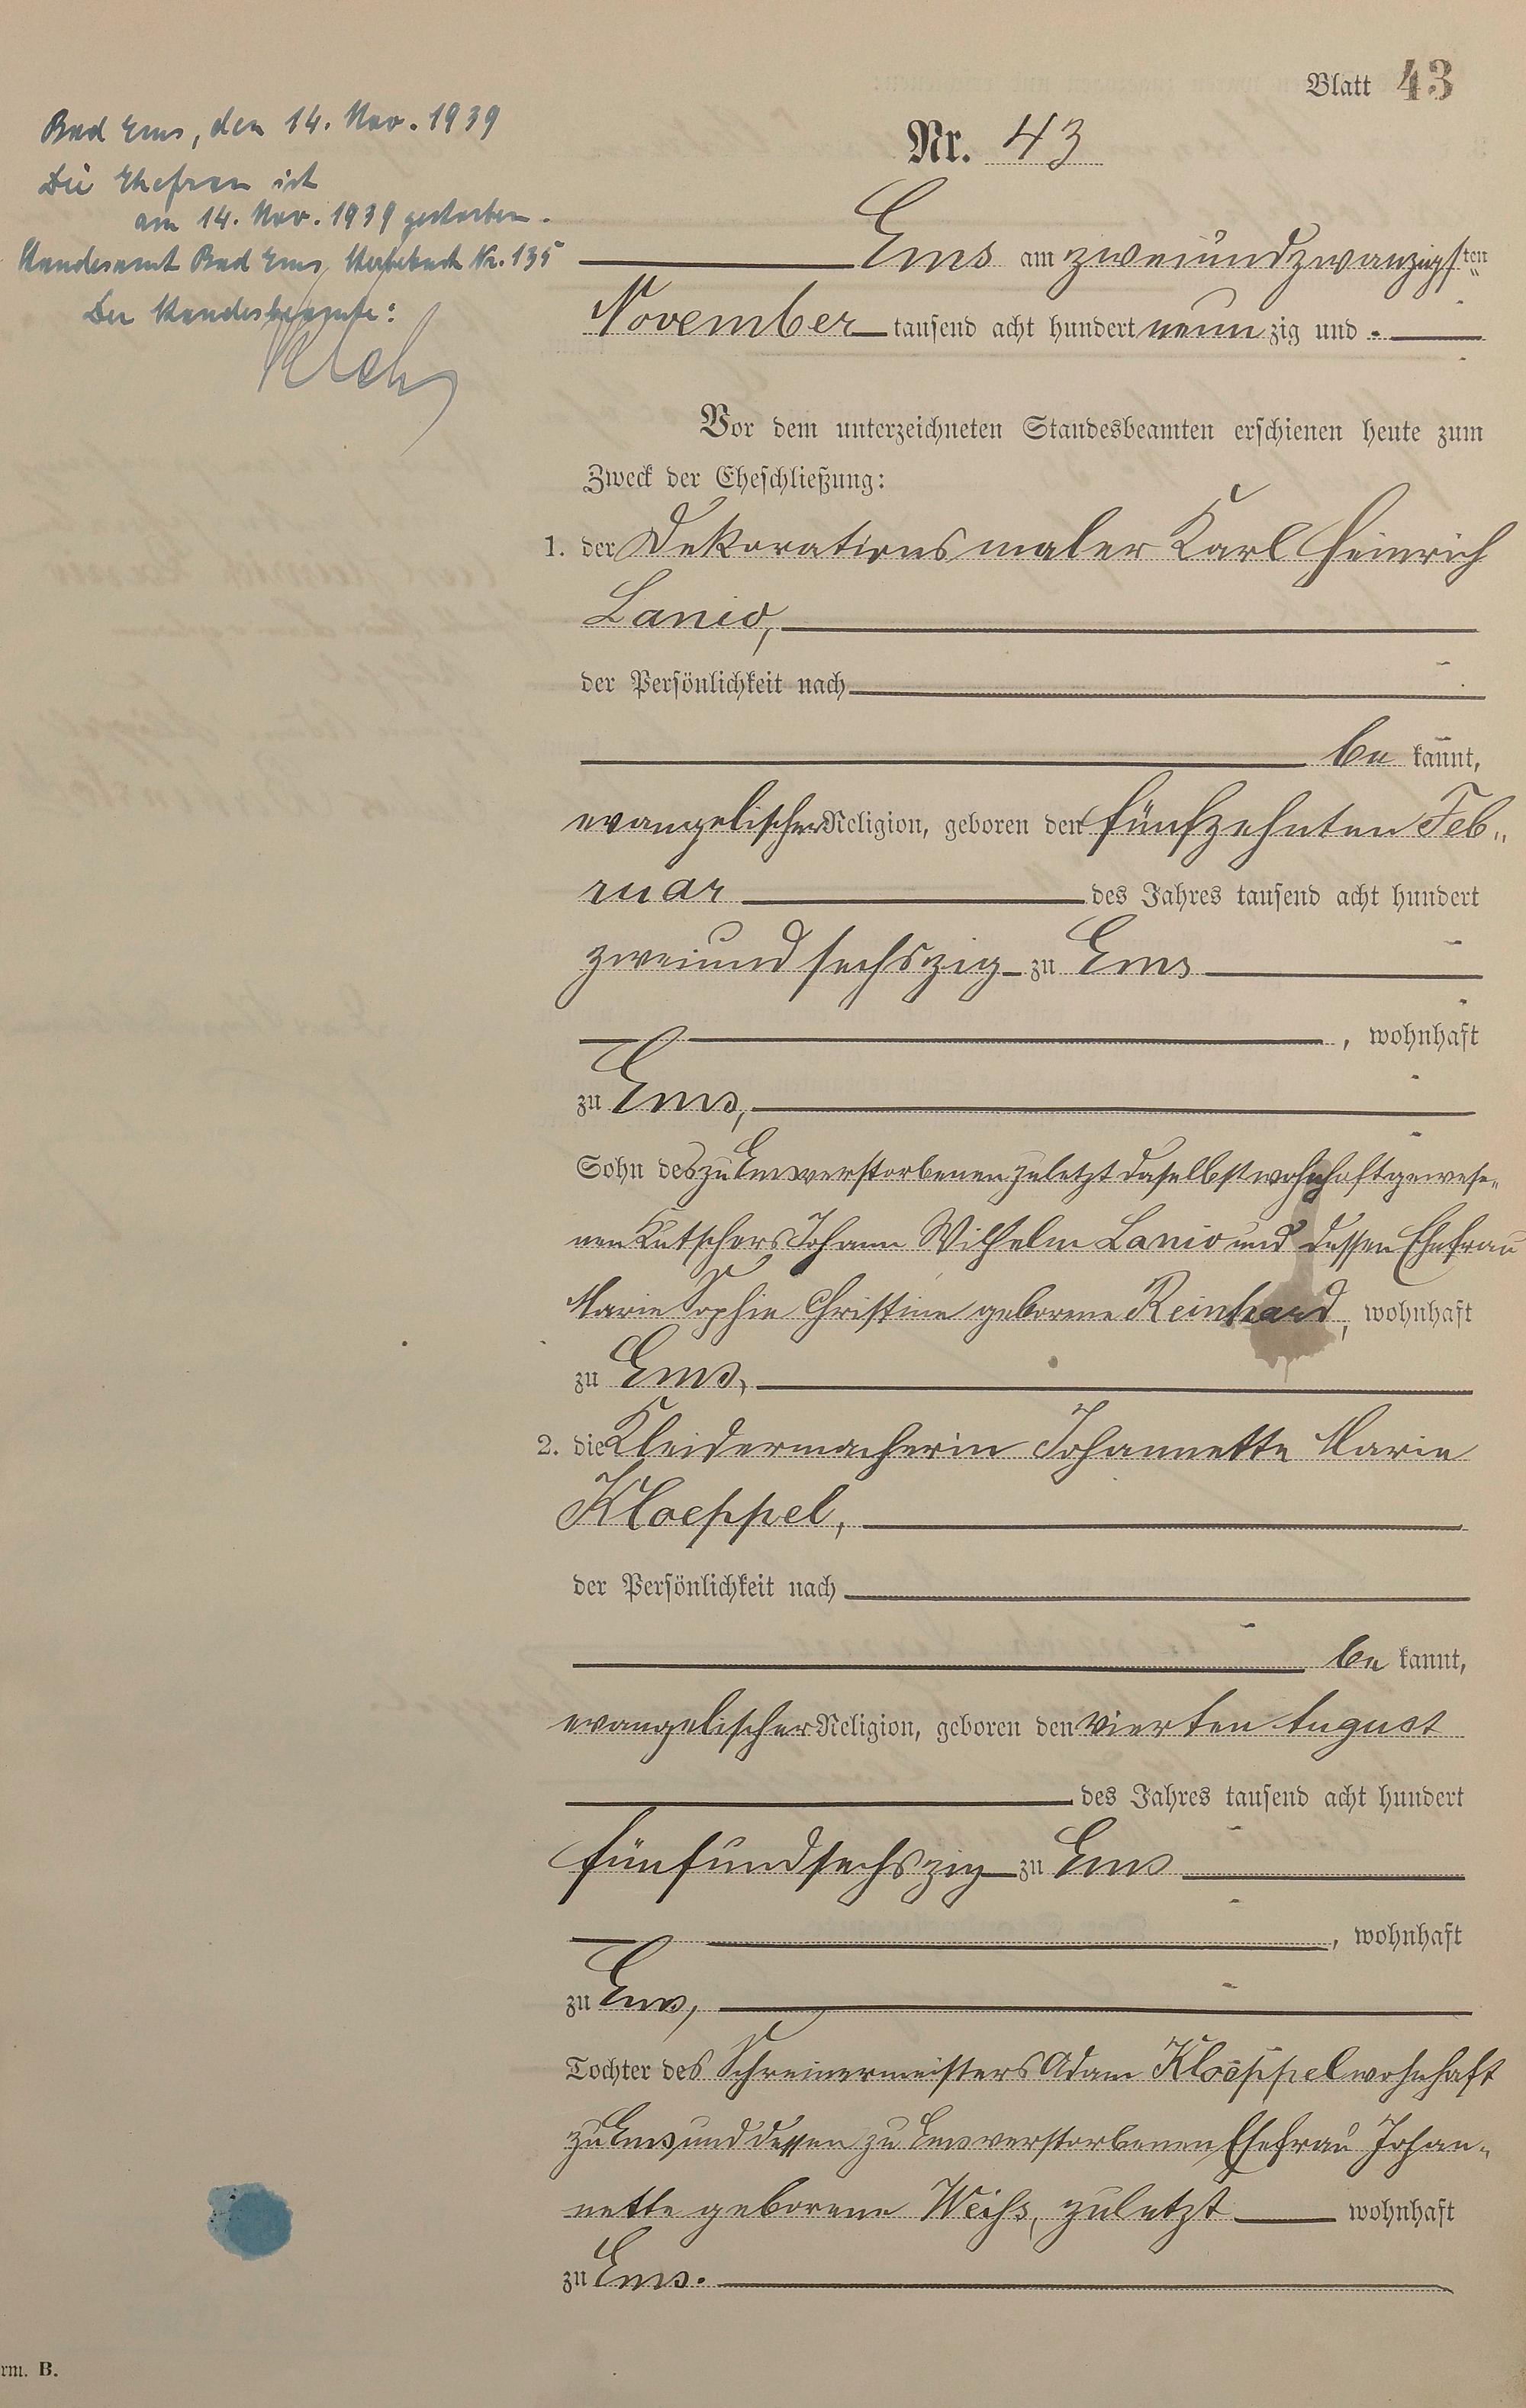 Blatt 43
Nr. 43
Bad Ems, den 14. Nov. 1939
Die Ehefrau ist
am 14. Nov. 1939 gestorben.
Standesamt Bad Ems, Sterbebuch Nr. 135
Der Standesbeamte:
Ems am zweiundzwanzigsten
November tausend acht hundert neunzig und
Vor dem unterzeichneten Standesbeamten erschienen heute zum
Zweck der Eheschließung:
1. der Dekorationsmaler Karl Heinrich
Lanio,
der Persönlichkeit nach
be kannt,
evangelischer Religion, geboren den fünfzehnten Feb„
ruar des Jahres tausend acht hundert
zweiundsechszig zu Ems
, wohnhaft
zu Ems,
Sohn des zu Ems verstorbenen zuletzt daselbst wohnhaft gewese„
nen Kutschers Johann Wilhelm Lanio und dessen Ehefrau
Marie Sophie Christine geborene Reinhard, wohnhaft
zu Ems,
2. die Kleidermacherin Johannette Marie
Kloeppel,
der Persönlichkeit nach
be kannt,
evangelischer Religion, geboren den vierten August
des Jahres tausend acht hundert
fünfundsechszig zu Ems
, wohnhaft
zu Ems,
Tochter des Schreinermeisters Adam Kloeppel wohnhaft
zu Ems und dessen zu Ems verstorbenen Ehefrau Johan„
nette geborene Weihs, zuletzt wohnhaft
zu Ems.
rm. B.